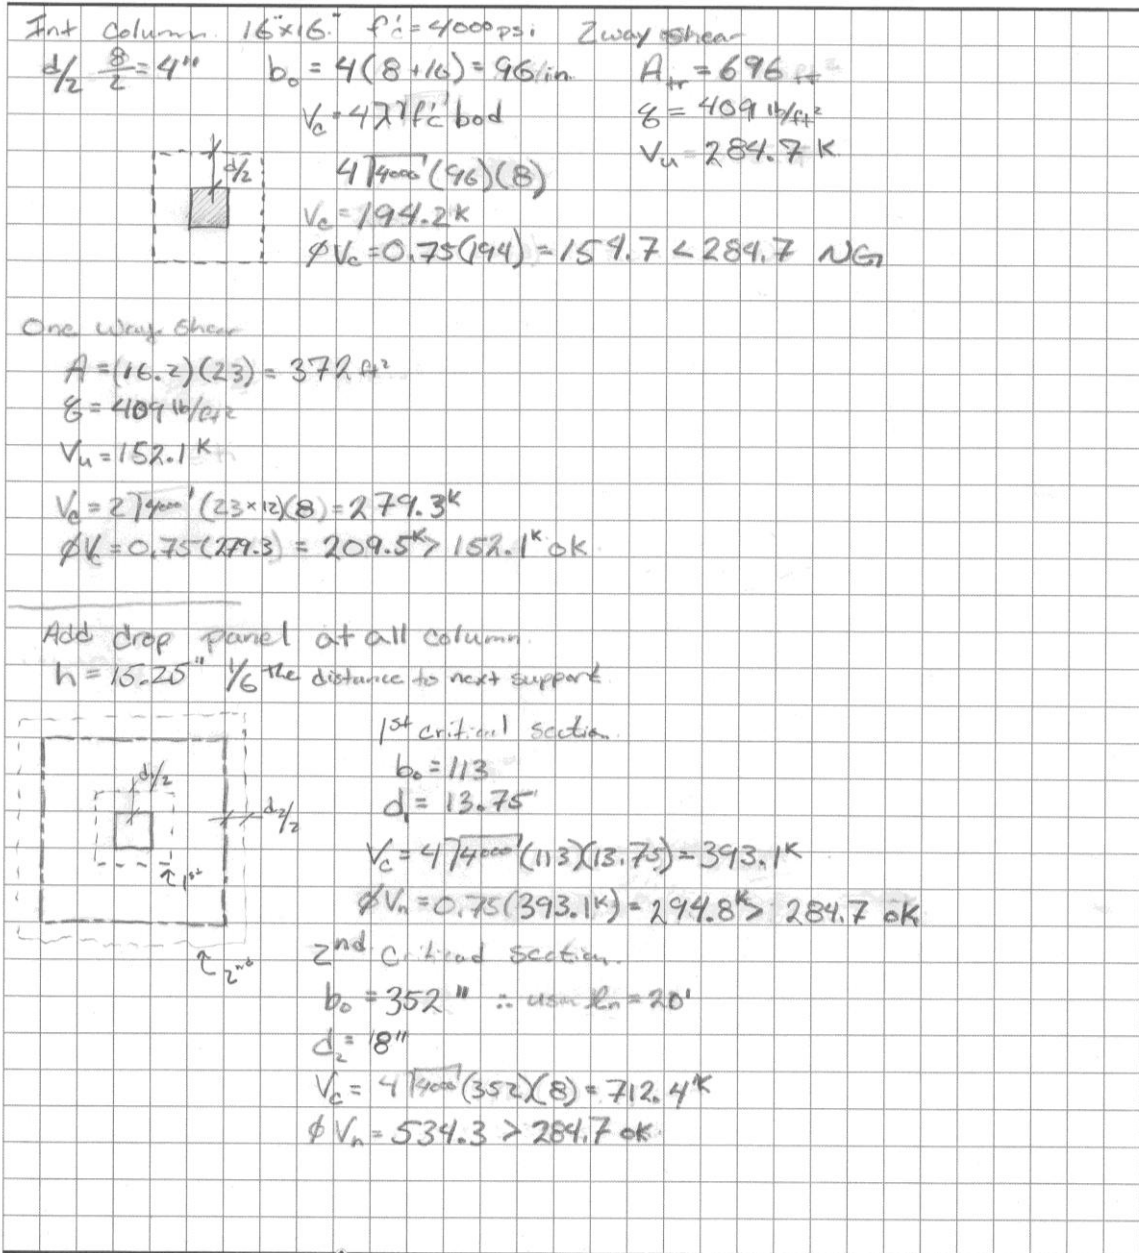 Int Column 16"x16" f'c=4000psi 2way shear
d/2 8/2=4" b₀=4(8+16)=96in A_tr=696 ft²
V_c=4λ√f'c b₀d q=409 lb/ft²
V_u=284.7 K
d/2
4√4000(96)(8)
V_c=194.2K
φV_c=0.75(194)=154.7<284.7 NG
One way shear
A=(16.2)(23)=372ft²
q=409 lb/ft²
V_u=152.1K
V_c=2√4000(23x12)(8)=279.3K
φV_c=0.75(279.3)=209.5K>152.1K ok
Add drop panel at all column.
h=15.25" 1/6 the distance to next support
1st critical section
b₀=113
d₁=13.75
d₁/2
d₂/2
V_c=4√4000(113)(13.75)=393.1K
1st
φV_n=0.75(393.1K)=294.8K>284.7 ok
2nd
2nd critical section.
b₀=352" ∴ use ℓn=20'
d₂=18"
V_c=4√4000(352)(8)=712.4K
φV_n=534.3>284.7 ok